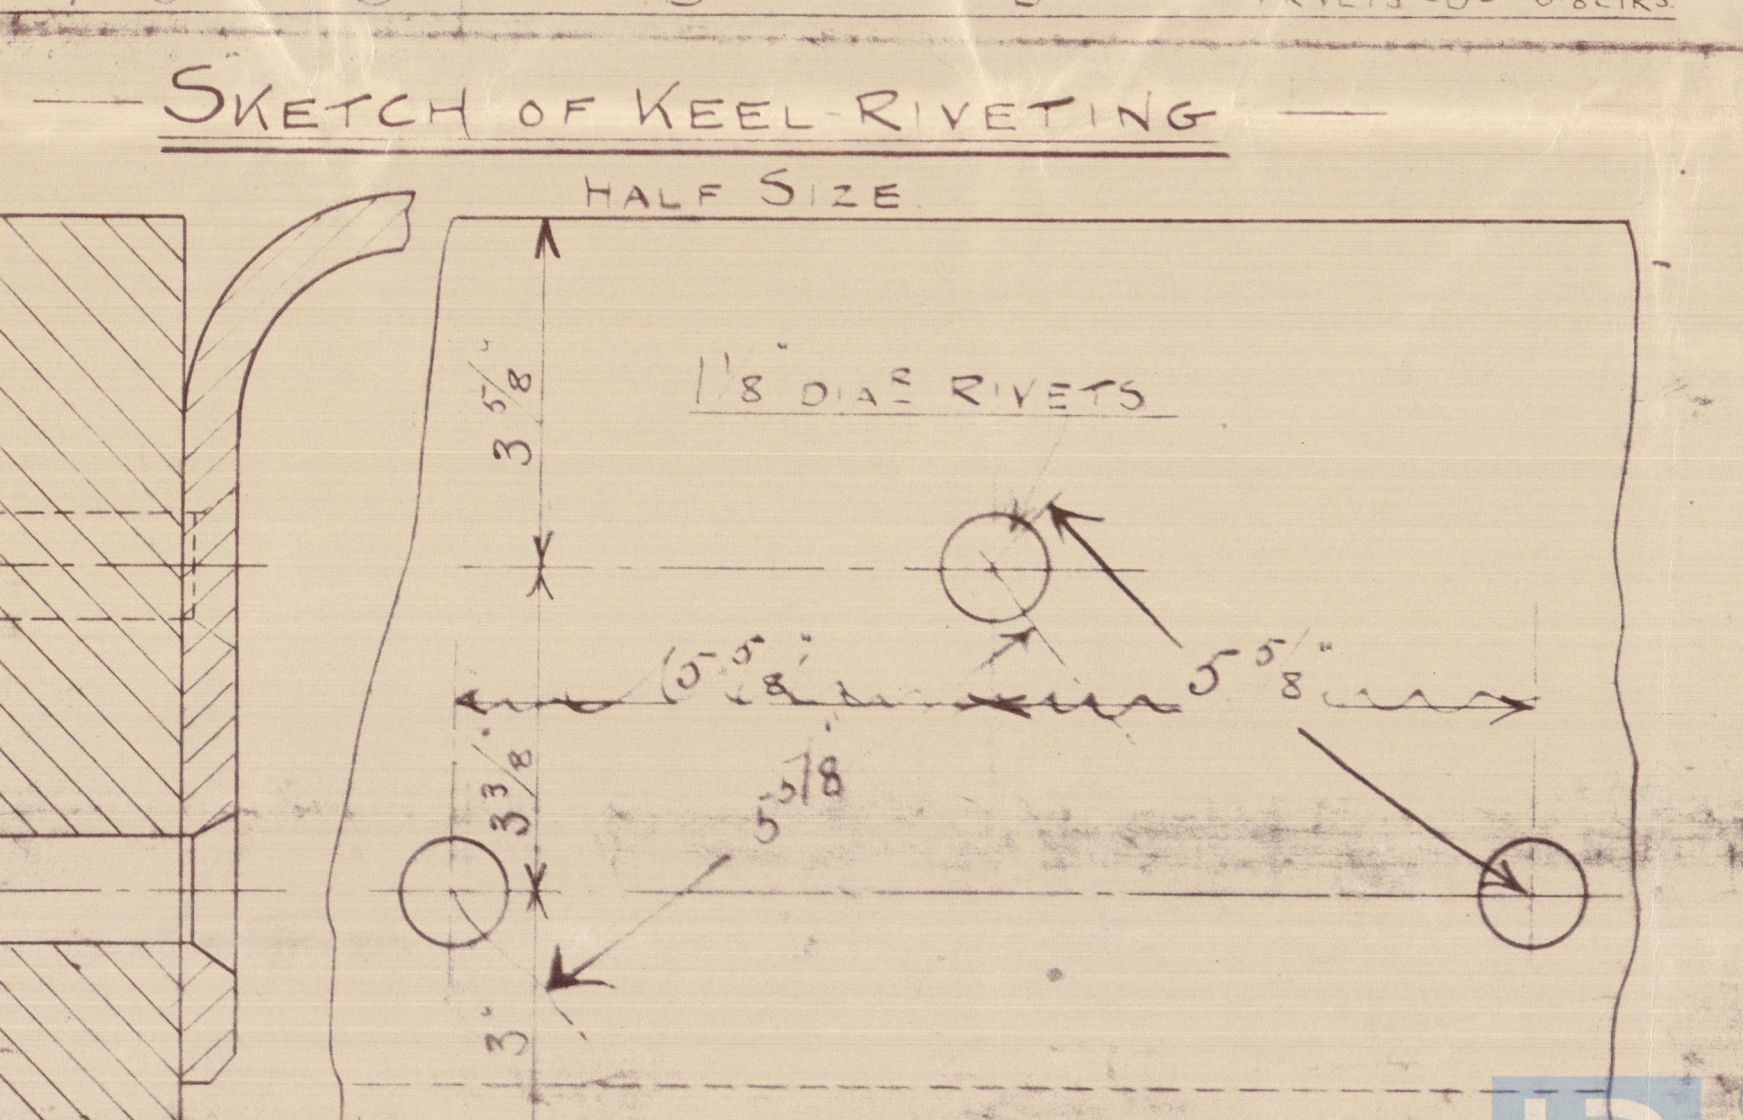 SKETCH OF KEEL-RIVETING
HALF SIZE
3 5/8"
1 1/8" DIAR RIVETS
5 5/8"
5 5/8"
3 3/8"
5 5/8
3"